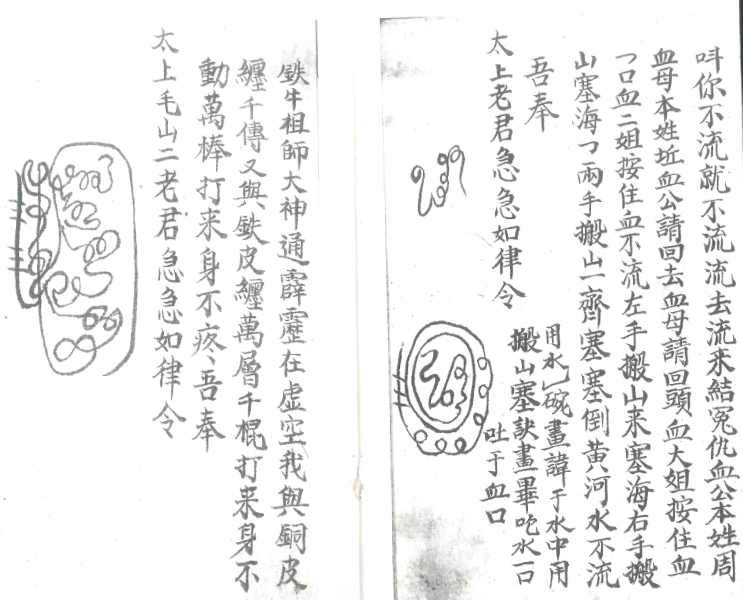 呌你不流就不流流去流来結冤仇血公本姓周
血母本姓坵血公請回去血母請回頭血大姐按住血
乛口血二姐按住血不流左手搬山来塞海右手搬
山塞海乛兩手搬山一齊塞塞倒黄河水不流
吾奉
太上老君急急如律令
用水乚碗畫諱于水中用
搬山塞訣畫畢吃水一口
吐于血口
鉄牛祖師大神通霹靂在虚空我與銅皮
纏千傳又與鉄皮纏萬層千棍打来身不
動萬棒打来身不疼〻吾奉
太上毛山二老君急急如律令